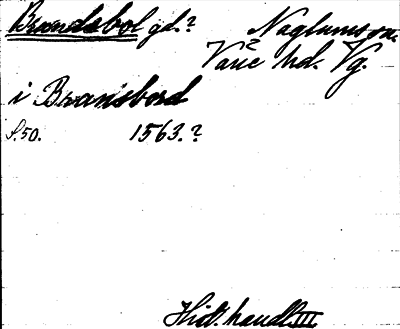 Brandsbol gd.? Naglums sn.
Vane hd. Vg.
i Bransbord
S.50. 1563.?
Hist. handl. III